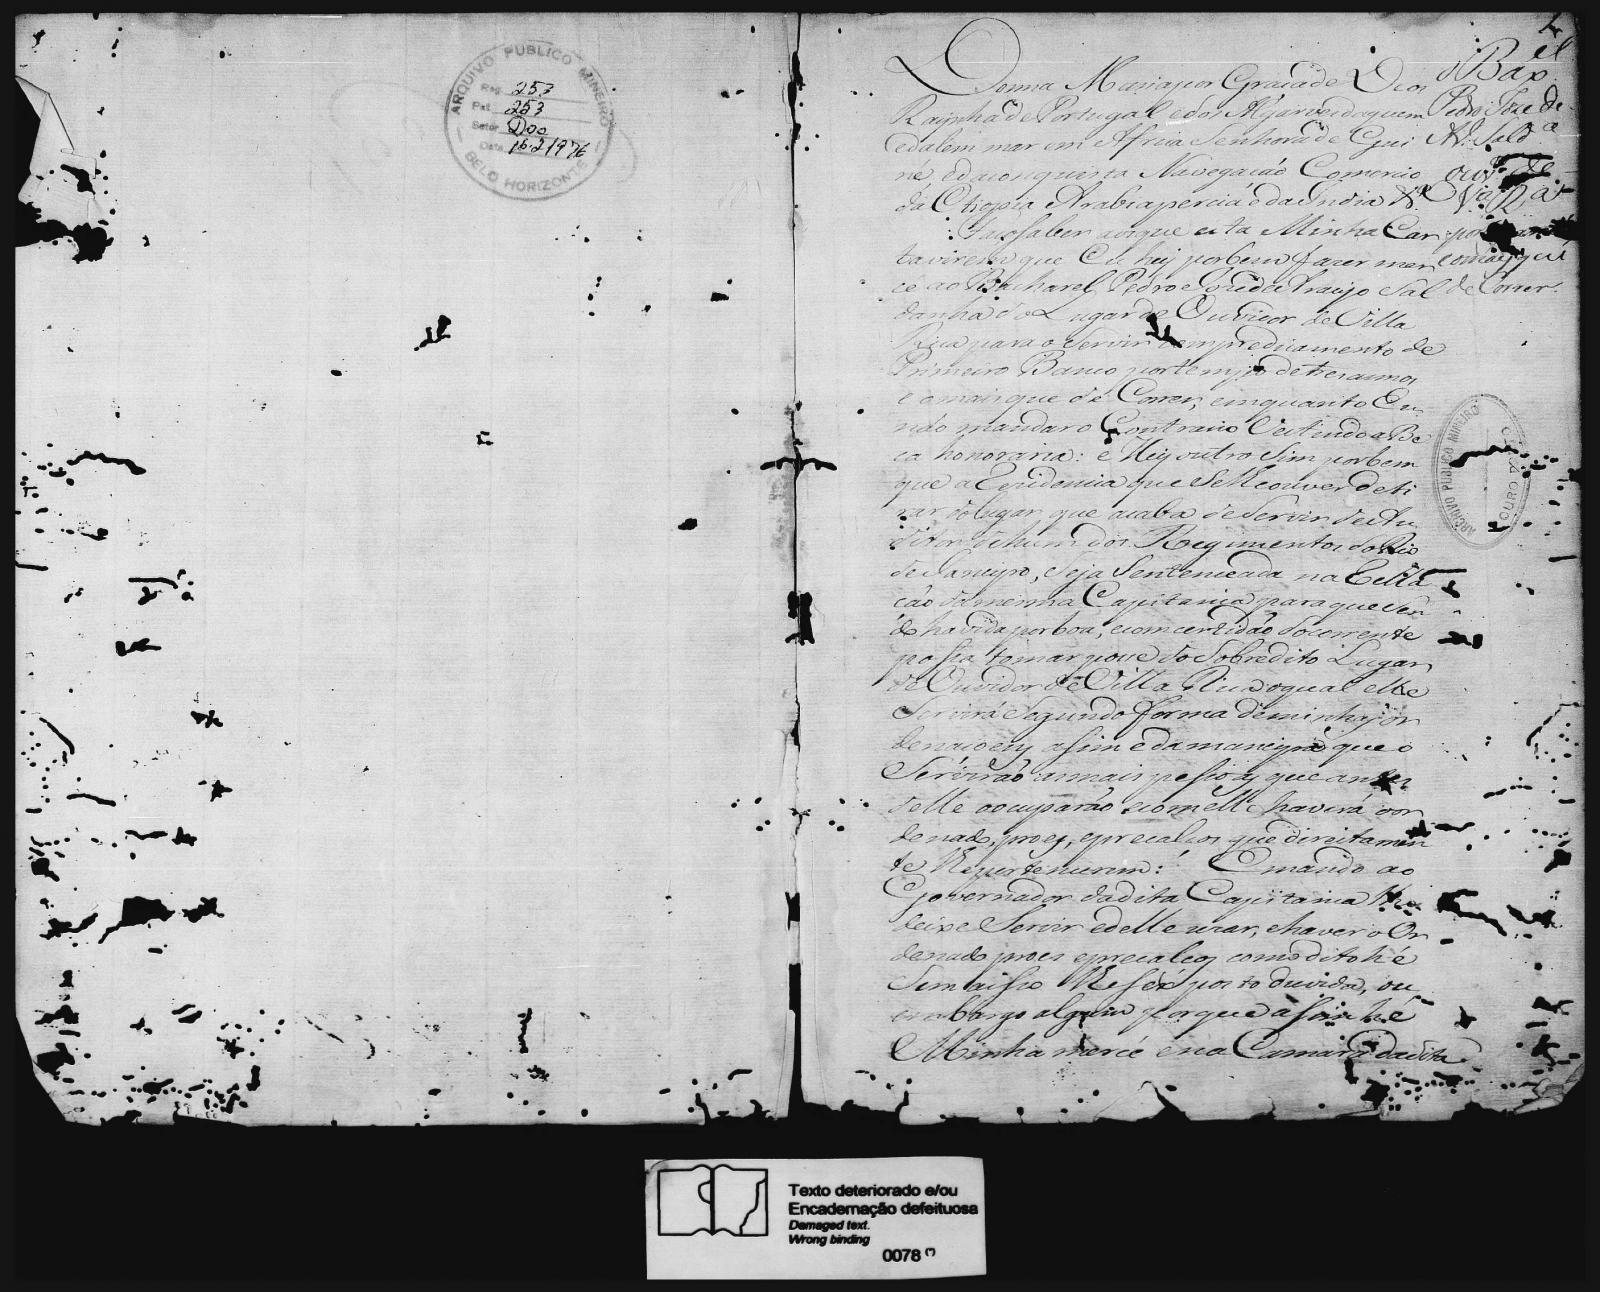 ARQUIVO PUBLICO MINEIRO
Reg. 253
Pat. 253
Setor Doc
Data 16.2.1976
BELO HORIZONTE
Donna Maria por Graça de Deos
Raynha de Portugal e dos Algarves daquem
e dalem mar em Africa Senhora de Gui
né e da conquista Navegaçaó Comercio
da Etiopia Arabia percia e da India &ª
Faço saber aos que esta Minha Car
ta virem que Eu hey por bem fazer mer
ce ao Bacharel Pedro Joze de Araujo Sal
danha do Lugar de Ouvidor de Villa
Rica para o Servir em predicamento de
Primeiro Banco por tempo de tres annos
e o mais que de Correr, emquanto Eu
náo mandar o Contrario Vestindo a Be
ca honoraria: e Hey outro Sim por bem
que a Rezidencia que Se lhe ouver de ti
rar do lugar que acaba de Servir de Au
ditor de hum dos Regimentos do Rio
de Janeyro, Seja Sentenceada na Rella
cáo da mesma Capitania para que Sen
do havida por boa, e com certidáo do corrente
possa tomar posse do Sobredito Lugar
de Ouvidor de Villa Rica o qual elle
Servirá Segundo forma de minhas or
denaçoens assim e da maneyra que o
Serviráo as mais pessoas que antes
delle o occuparáo e com elle haverá o or
denado, proes, e precalsos que direitamen
te lhe pertencerem: E mando ao
Governador da dita Capitania lhe
deixe Servir e delle uzar, e haver o Or
denado proes e precalços como dito hé
Sem a isso lhe Ser posto duvida, ou
embargo algum porque assim hé
Minha mercé e na Camara da dita
o Bax.el
Pedro Joze de
Ar.º Sald.ª
ouv.or de
Vª Rª
por 3 an
e o mais que
de Correr.
ARCHIVO PUBLICO MINEIRO
OURO PRETO
Texto deteriorado e/ou
Encadernação defeituosa
Damaged text.
Wrong binding
0078 (*)